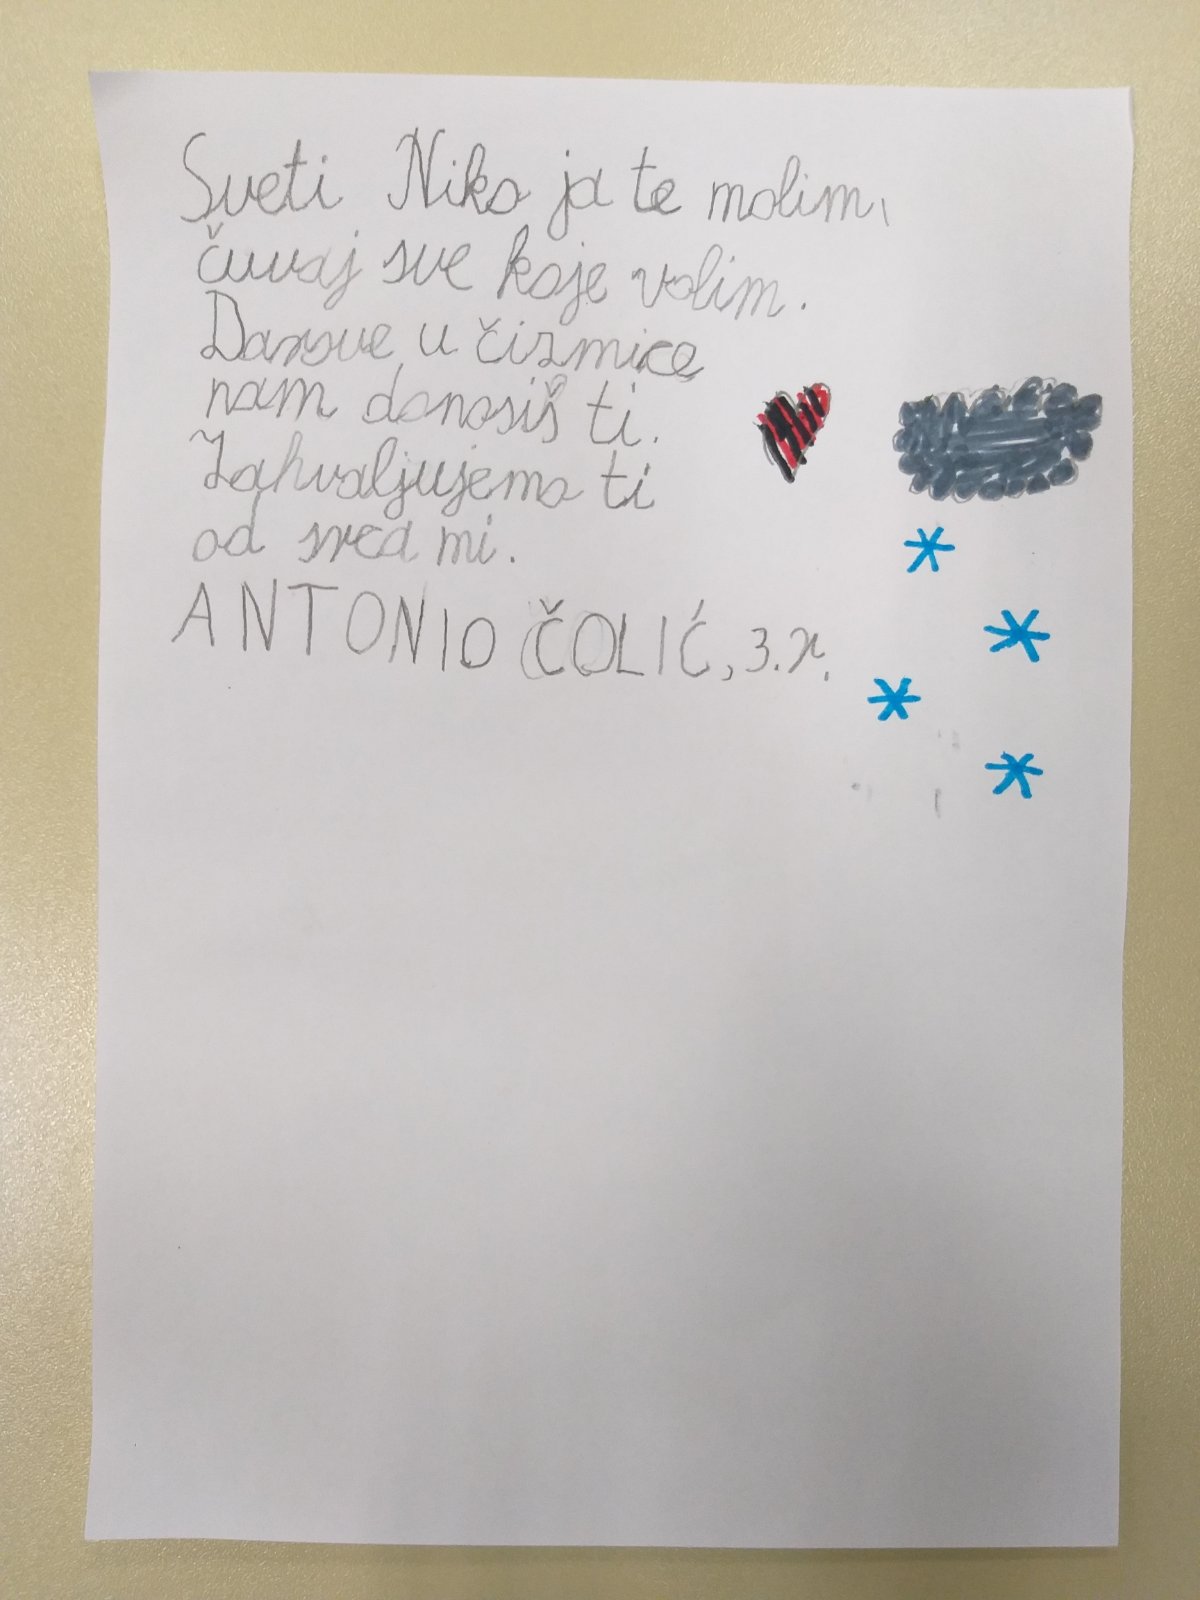 Sveti Niko ja te molim,
čuvaj sve koje volim.
Darove u čizmice
nam donosiš ti.
Zahvaljujemo ti
od srca mi.
ANTONIO ČOLIĆ, 3.r.